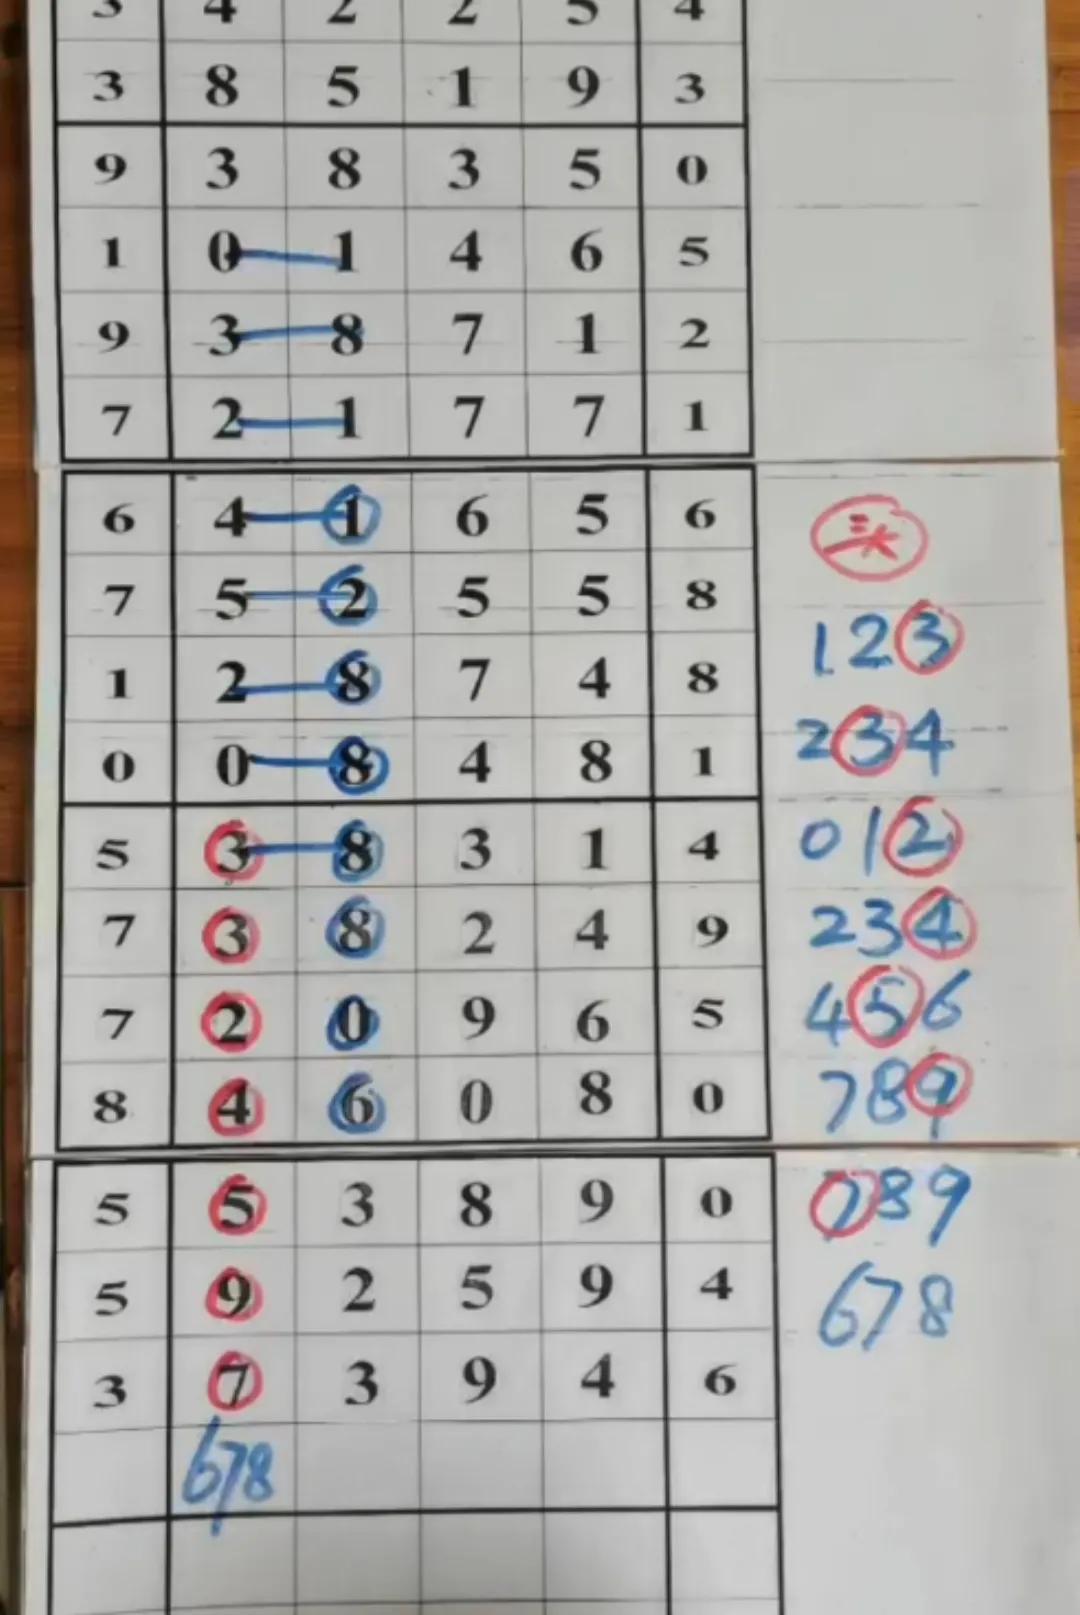 3 4 2 2 5 4
3 8 5 1 9 3
9 3 8 3 5 0
1 0 1 4 6 5
9 3 8 7 1 2
7 2 1 7 7 1
6 4 1 6 5 6
7 5 2 5 5 8 123
1 2 8 7 4 8 234
0 0 8 4 8 1
5 3 8 3 1 4 012
7 3 8 2 4 9 234
7 2 0 9 6 5 456
8 4 6 0 8 0 789
5 5 3 8 9 0 789
5 9 2 5 9 4 678
3 7 3 9 4 6
678